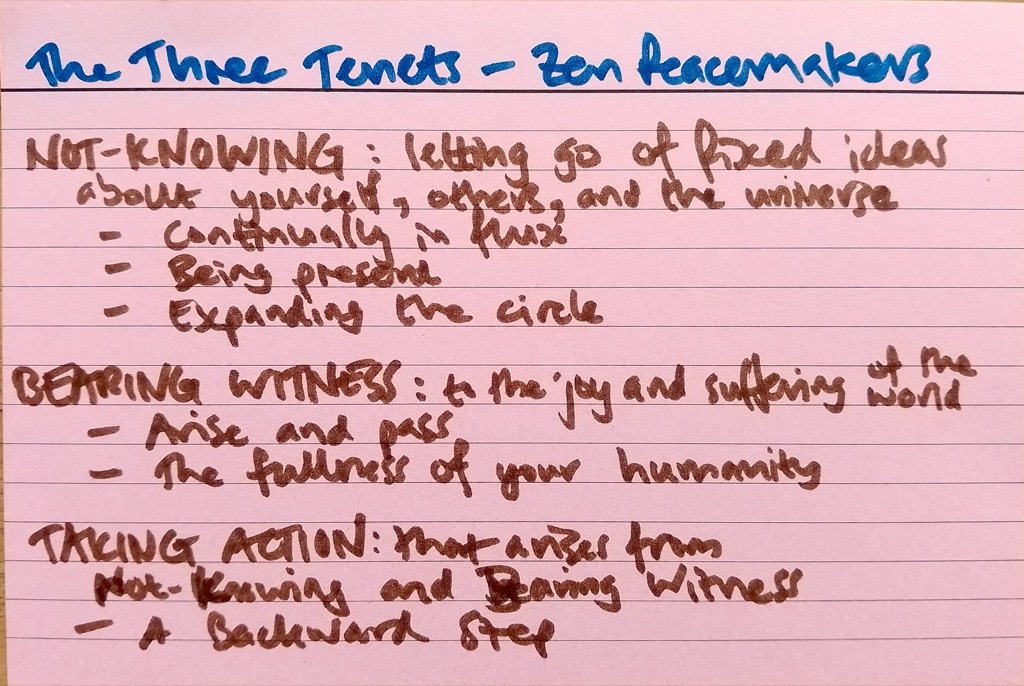 The Three Tenets - Zen Peacemakers
NOT-KNOWING: letting go of fixed ideas
about yourself, others, and the universe
- Continually in flux
- Being present
- Expanding the circle
BEARING WITNESS: to the joy and suffering of the world
- Arise and pass
- The fullness of your humanity
TAKING ACTION: that arises from
Not-Knowing and Bearing Witness
- A Backward Step